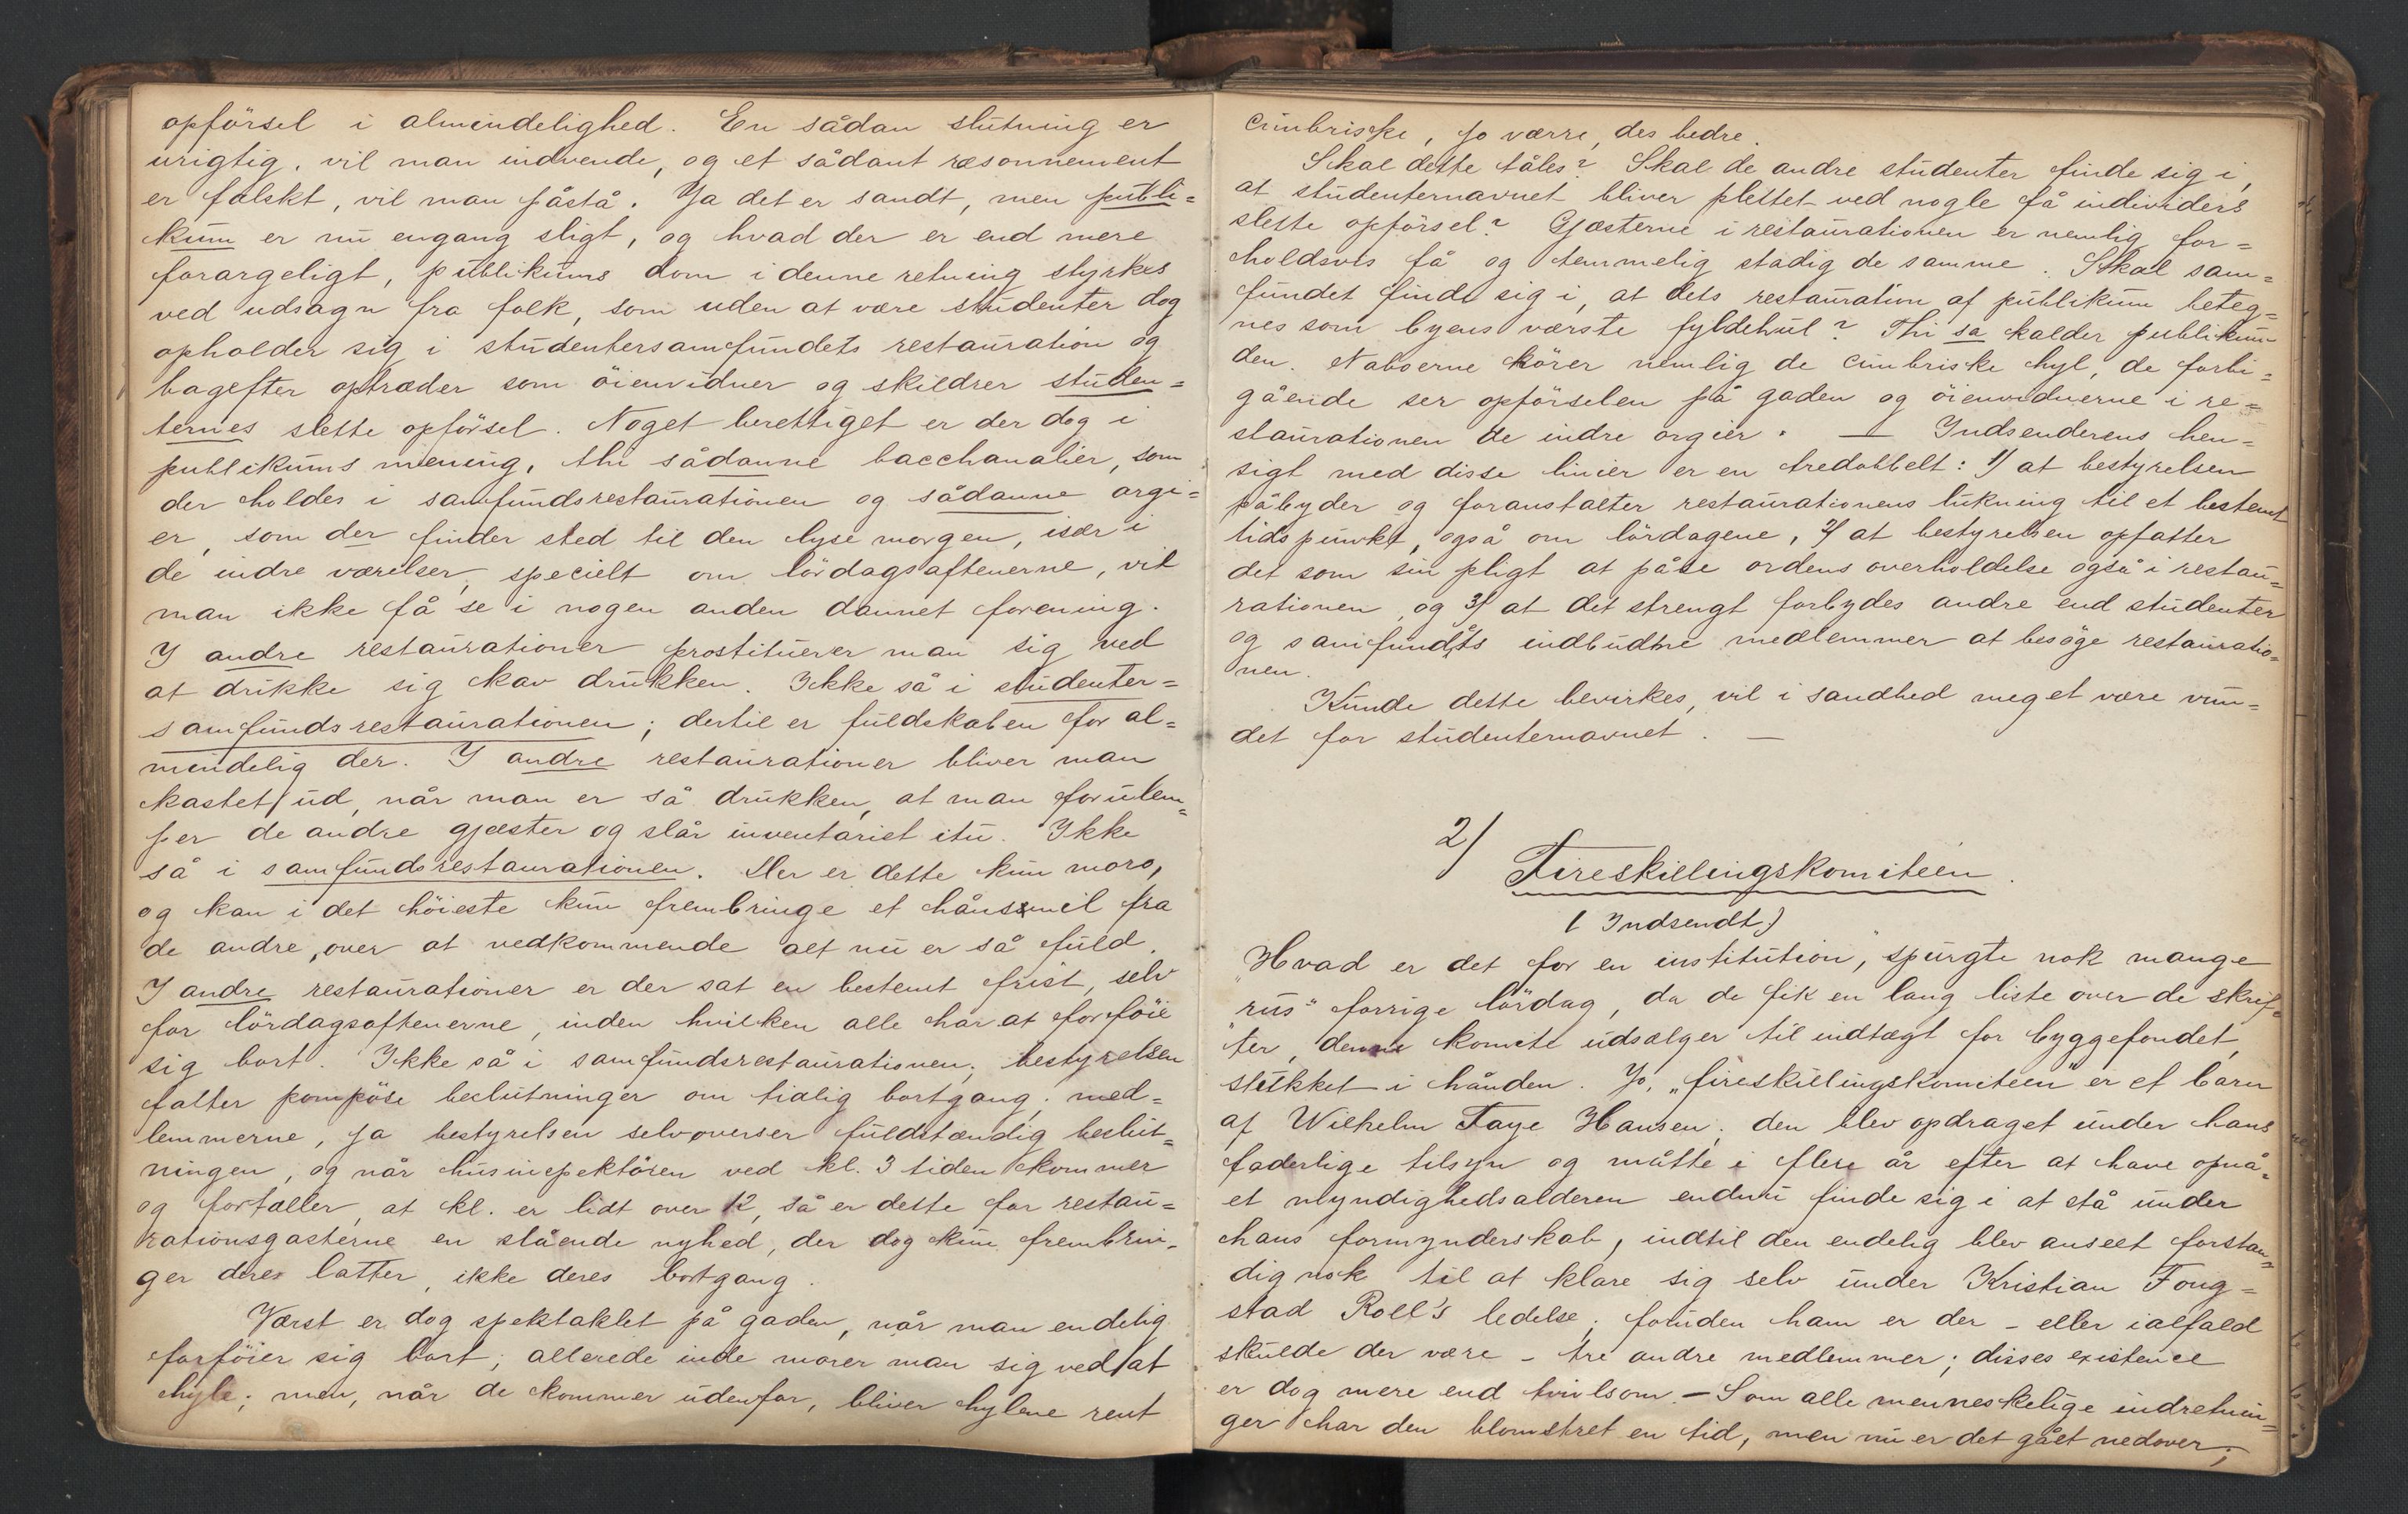 opförsel i almindelighed. En sådan slutning er
urigtig, vil man indvende, og et sådant ræsonnement
er falskt, vil man påstå. Ja det er sandt, men publi=
kum er nu engang sligt, og hvad der er end mere
forargeligt, publikums dom i denne retning styrkes
ved udsagn fra folk, som uden at være studenter dog
opholder sig i studentersamfundets restauration og
bagefter optræder som öienvidner og skildrer studen=
ternes slette opförsel. Noget berettiget er der dog i
publikums mening, thi sådanne bacchanalier, som
der holdes i samfundsrestaurationen og sådanne orgi=
er, som der finder sted til den lyse morgen, især i
de indre værelser, specielt om lördagsaftenerne, vil
man ikke få se i nogen anden dannet forening.
I andre restaurationer prostituerer man sig ved
at drikke sig kav drukken. Ikke så i studenter=
samfundsrestaurationen; dertil er fuldskaben for al=
mindelig der. I andre restaurationer bliver man
kastet ud, når man er så drukken, at man forulem=
per de andre gjæster og slår inventariet itu. Ikke
så i samfundsrestaurationen. Her er dette kun moro,
og kan i det höieste kun frembringe et hånsmil fra
de andre, over at vedkommende alt nu er så fuld.
I andre restaurationer er der sat en bestemt frist, selv
for lördagsaftenerne, inden hvilken alle har at forföie
sig bort. Ikke så i samfundsrestaurationen; bestyrelsen
fatter pompöse beslutninger om tidlig bortgang; med=
lemmerne, ja bestyrelsen selv overser fuldstændig beslut=
ningen, og når husinspektören ved kl. 3 tiden kommer
og fortæller, at kl. er lidt over 12, så er dette for restau=
rationsgæsterne en slående nyhed, der dog kun frembrin=
ger deres latter, ikke deres bortgang.
Værst er dog spektaklet på gaden, når man endelig
forföier sig bort; allerede inde morer man sig ved at
hyle; men, når de kommer udenfor, bliver hylene rent
cimbriske, jo værre, des bedre.
Skal dette tåles? Skal de andre studenter finde sig i,
at studenternavnet bliver plettet ved nogle få individers
slette opförsel? Gjæsterne i restaurationen er nemlig for=
holdsvis få og temmelig stadig de samme. Skal sam=
fundet finde sig i, at dets restauration af publikum beteg=
nes som byens værste fyldehul? Thi så kalder publikum
den. Naboerne hörer nemlig de cimbriske hyl, de forbi=
gående ser opförselen på gaden og öienvidnerne i re=
staurationen de indre orgier. — Indsenderens hen=
sigt med disse linier er en tredobbelt: 1/ at bestyrelsen
påbyder og foranstalter restaurationens lukning til et bestemt
tidspunkt, også om lördagene, 2/ at bestyrelsen opfatter
det som sin pligt at påse ordens overholdelse også i restau=
rationen, og 3/ at det strengt forbydes andre end studenter
og samfundets indbudne medlemmer at besöge restauratio=
nen.
Kunde dette bevirkes, vil i sandhed meget være vun=
det for studenternavnet. —
2/
Fireskillingskomiteen.
(Indsendt.)
"Hvad er det for en institution," spurgte nok mange
"rus" forrige lördag, da de fik en lang liste over de skrif=
ter, denne komite udsælger til indtægt for byggefondet,
stukket i hånden. Jo, "fireskillingskomiteen" er et barn
af Wilhelm Faye Hansen; den blev opdraget under hans
faderlige tilsyn og måtte i flere år efter at have opnå=
et myndighedsalderen endnu finde sig i at stå under
hans formynderskab, indtil den endelig blev anseet forstan=
dig nok til at klare sig selv under Kristian Foug=
stad Roll's ledelse; foruden ham er der – eller ialfald
skulde der være – tre andre medlemmer; disses existence
er dog mere end tvivlsom. — Som alle menneskelige indretnin=
ger har den blomstret en tid, men nu er det gået nedover;